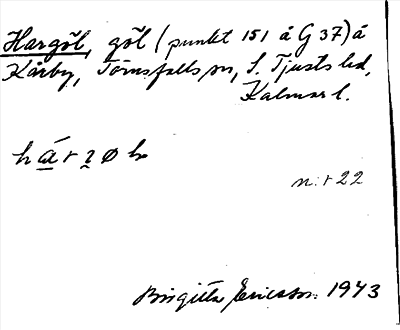 Hargöl, göl (punkt 151 å G 37) å
Kårby, Törnsfalls sn, S. Tjusts hd,
Kalmar l.
n:r 22
Birgitta Ericsson. 1943